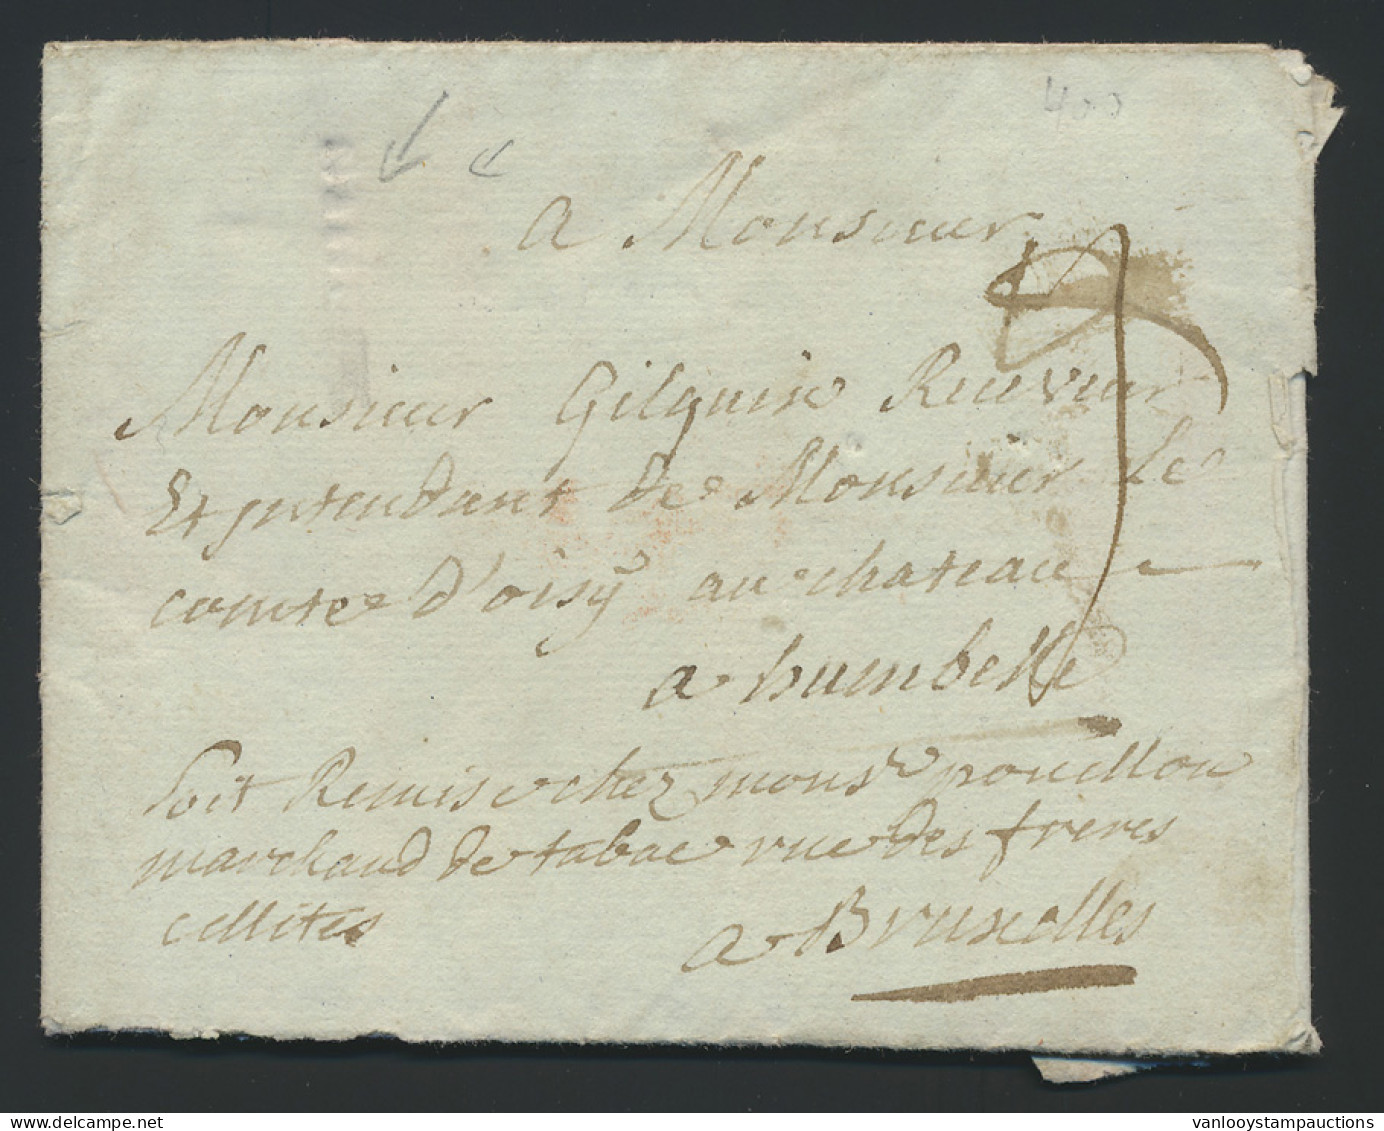 400
a Monsieur
Monsieur Gilquin Receveur
Et jntendant de Monsieur le
comte d'oisÿ au chateau
a humbeke
soit Remise chez monsr pouillon
marchand de tabac rue des freres
cellites
a Bruxelles
vanlooystampauctions